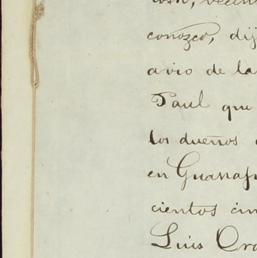 conozco, dij
avio de la
Paul que
los dueños
en Guanaju
cientos cin
Luis Oro